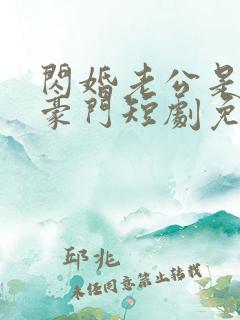 閃婚老公是
豪門短劇免
邱兆
未任同意禁止转载